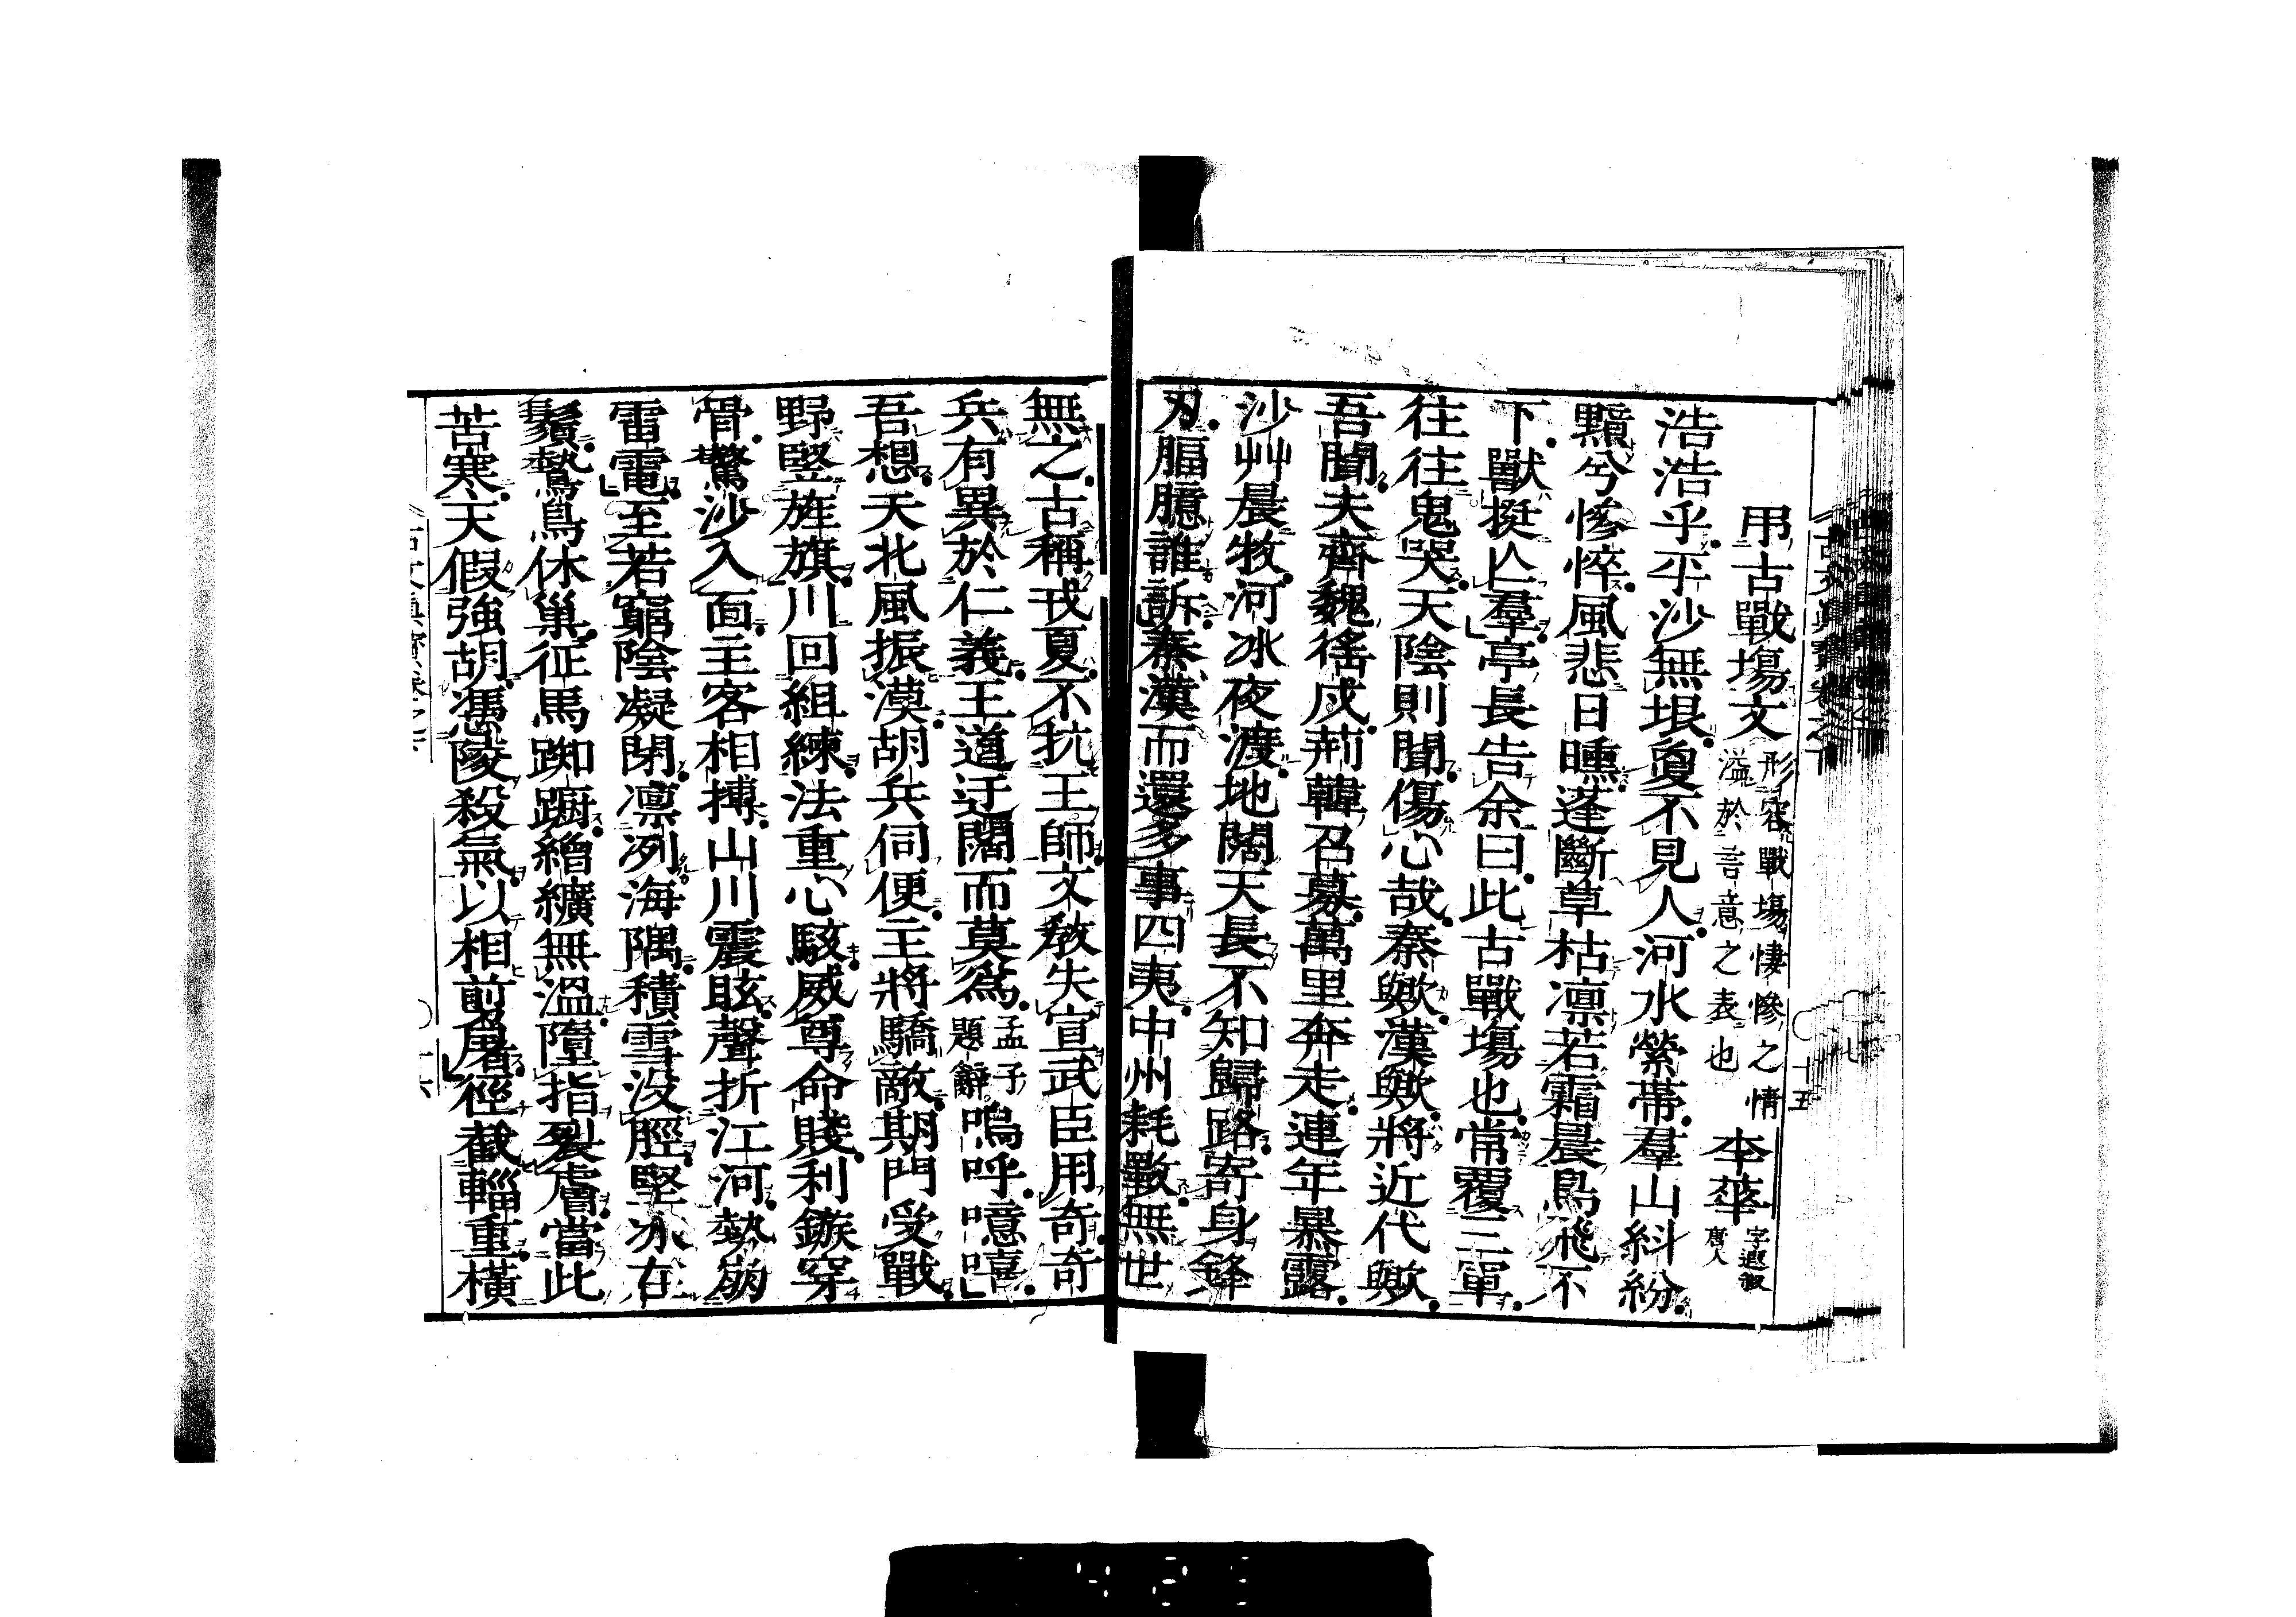 弔古戰塲文 形容戰塲悽慘之情溢於言意之表也 李華 字遐叔唐人
浩浩乎平沙無垠敻不見人河水縈帶羣山糾紛
黯兮慘悴風悲日曛蓬斷草枯凛若霜晨鳥飛不
下獸挺亾羣亭長告余曰此古戰塲也常覆三軍
往往鬼哭天陰則聞傷心哉秦歟漢歟將近代歟
吾聞夫齊魏徭戍荊韓召募萬里奔走連年暴露
沙艸晨牧河冰夜渡地闊天長不知歸路寄身鋒
刃腷臆誰訴秦漢而還多事四夷中州耗斁無世
無之古稱戎夏不抗王師文教失宣武臣用奇奇
兵有異於仁義王道迂闊而莫爲 孟子題辭 嗚呼噫嘻
吾想夫北風振漠胡兵伺便主將驕敵期門受戰
野竪旌旗川回組練法重心駭威尊命賤利鏃穿
骨驚沙入面主客相搏山川震眩聲折江河勢崩
雷電至若窮陰凝閉凛冽海隅積雪没脛堅冰在
鬚鷙鳥休巢征馬踟蹰繒纊無溫墮指裂膚當此
苦寒天假強胡憑陵殺氣以相剪屠徑截輜重橫